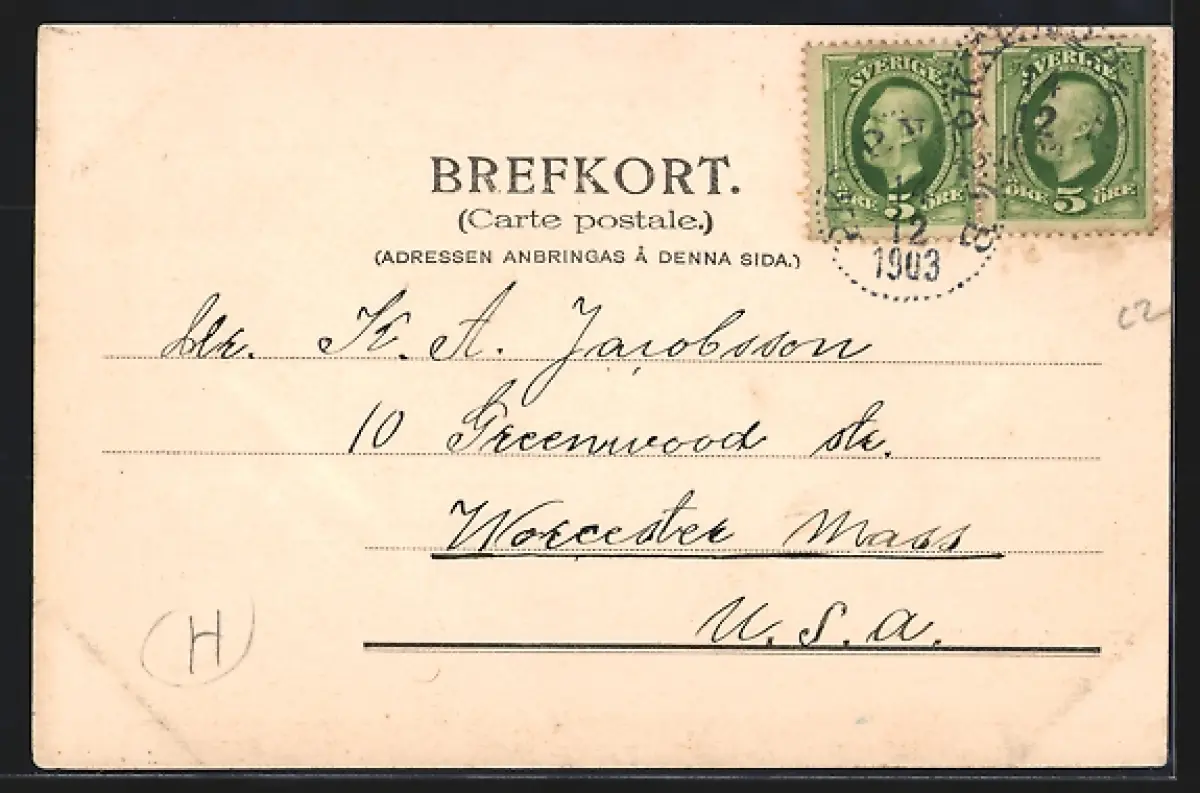 SVERIGE SVERIGE
ÖRE 5 ÖRE ÖRE 5 ÖRE
12
12
1903
BREFKORT.
(Carte postale.)
(ADRESSEN ANBRINGAS Å DENNA SIDA.)
K. A. Jacobsson
10 Greenwood str.
Worcester Mass
U. S. A.
H